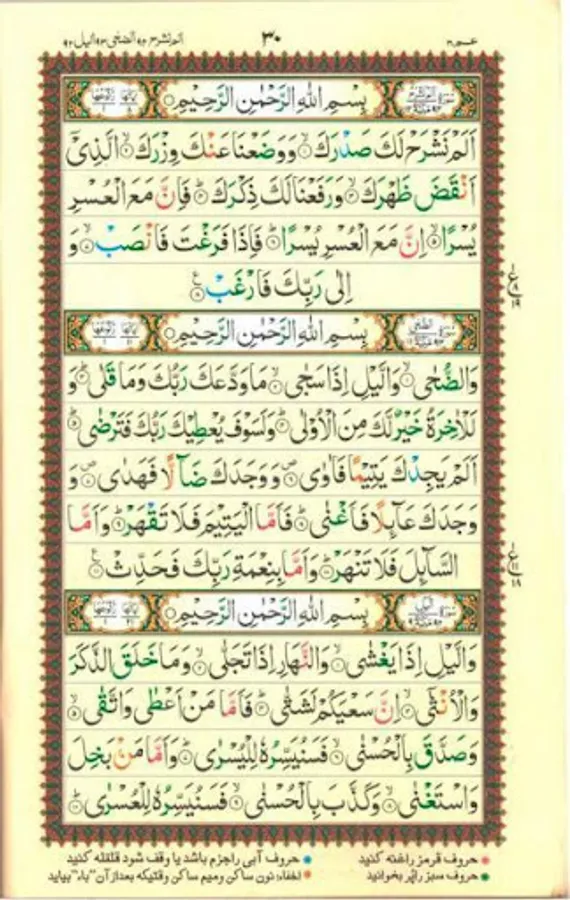 الم نشرح ٩٤ الضحى ٩٣ اليل ٩٢ ٣٠ عـم ٣٠
بِسْمِ اللهِ الرَّحْمٰنِ الرَّحِيْمِ
اَلَمْ نَشْرَحْ لَكَ صَدْرَكَ ۙ۱ وَوَضَعْنَا عَنْكَ وِزْرَكَ ۙ۲ الَّذِيْٓ
اَنْقَضَ ظَهْرَكَ ۙ۳ وَرَفَعْنَا لَكَ ذِكْرَكَ ؕ۴ فَاِنَّ مَعَ الْعُسْرِ
يُسْرًا ۙ۵ اِنَّ مَعَ الْعُسْرِ يُسْرًا ؕ۶ فَاِذَا فَرَغْتَ فَانْصَبْ ۙ۷ وَ
اِلٰى رَبِّكَ فَارْغَبْ ۸
بِسْمِ اللهِ الرَّحْمٰنِ الرَّحِيْمِ
وَالضُّحٰى ۙ۱ وَالَّيْلِ اِذَا سَجٰى ۙ۲ مَا وَدَّعَكَ رَبُّكَ وَمَا قَلٰى ؕ۳ وَ
لَلْاٰخِرَةُ خَيْرٌ لَّكَ مِنَ الْاُوْلٰى ؕ۴ وَلَسَوْفَ يُعْطِيْكَ رَبُّكَ فَتَرْضٰى ؕ۵
اَلَمْ يَجِدْكَ يَتِيْمًا فَاٰوٰى ۶ وَوَجَدَكَ ضَآلًّا فَهَدٰى ۷ وَ
وَجَدَكَ عَآئِلًا فَاَغْنٰى ؕ۸ فَاَمَّا الْيَتِيْمَ فَلَا تَقْهَرْ ؕ۹ وَاَمَّا
السَّآئِلَ فَلَا تَنْهَرْ ؕ۱۰ وَاَمَّا بِنِعْمَةِ رَبِّكَ فَحَدِّثْ ۱۱
بِسْمِ اللهِ الرَّحْمٰنِ الرَّحِيْمِ
وَالَّيْلِ اِذَا يَغْشٰى ۙ۱ وَالنَّهَارِ اِذَا تَجَلّٰى ۙ۲ وَمَا خَلَقَ الذَّكَرَ
وَالْاُنْثٰىٓ ۙ۳ اِنَّ سَعْيَكُمْ لَشَتّٰى ؕ۴ فَاَمَّا مَنْ اَعْطٰى وَاتَّقٰى ۙ۵
وَصَدَّقَ بِالْحُسْنٰى ۙ۶ فَسَنُيَسِّرُهٗ لِلْيُسْرٰى ؕ۷ وَاَمَّا مَنْ بَخِلَ
وَاسْتَغْنٰى ۙ۸ وَكَذَّبَ بِالْحُسْنٰى ۙ۹ فَسَنُيَسِّرُهٗ لِلْعُسْرٰى ؕ۱۰
حروف قرمز را غنه کنید
حروف سبز را پُر بخوانید
حروف آبی را جزم باشد یا وقف شود قلقله کنید
اخفاء: نون ساکن و میم ساکن وقتیکه بعد از آن "باء" بیاید